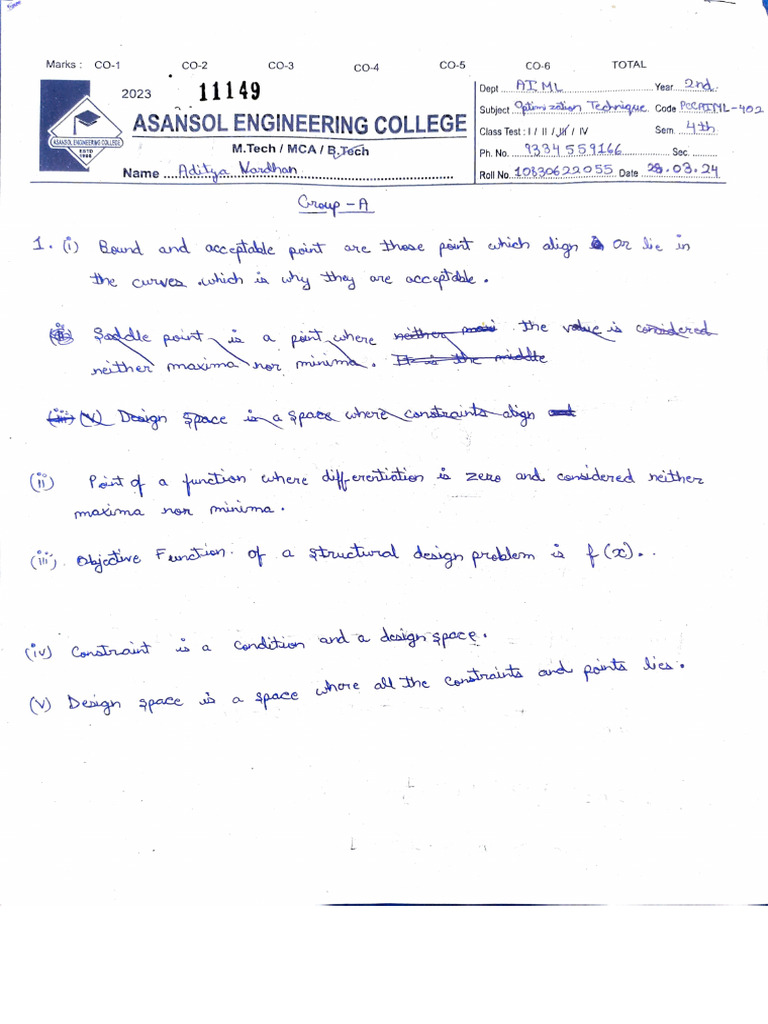 Marks : CO-1 CO-2 CO-3 CO-4 CO-5 CO-6 TOTAL
2023 11149
ASANSOL ENGINEERING COLLEGE
M.Tech / MCA / B.Tech
Name Aditya Vardhan
ASANSOL ENGINEERING COLLEGE
ESTD
1998
Dept AIML Year 2nd
Subject Optimization Technique Code PCCAIML-402
Class Test : I / II / III / IV Sem. 4th
Ph. No. 9334559166 Sec.
Roll No. 10830622055 Date 28.03.24
Group - A
1. (i) Bound and acceptable point are those point which align or lie in
the curves .which is why they are acceptable .
Saddle point is a point where neither maxi the value is considered
neither maxima nor minima. It is the middle
(iii) (v) Design Space is a space where constraints align and
(ii) Point of a function where differentiation is zero and considered neither
maxima nor minima .
(iii) Objective Function of a structural design problem is f(x). .
(iv) Constraint is a condition and a design space.
(v) Design space is a space where all the constraints and points lies .